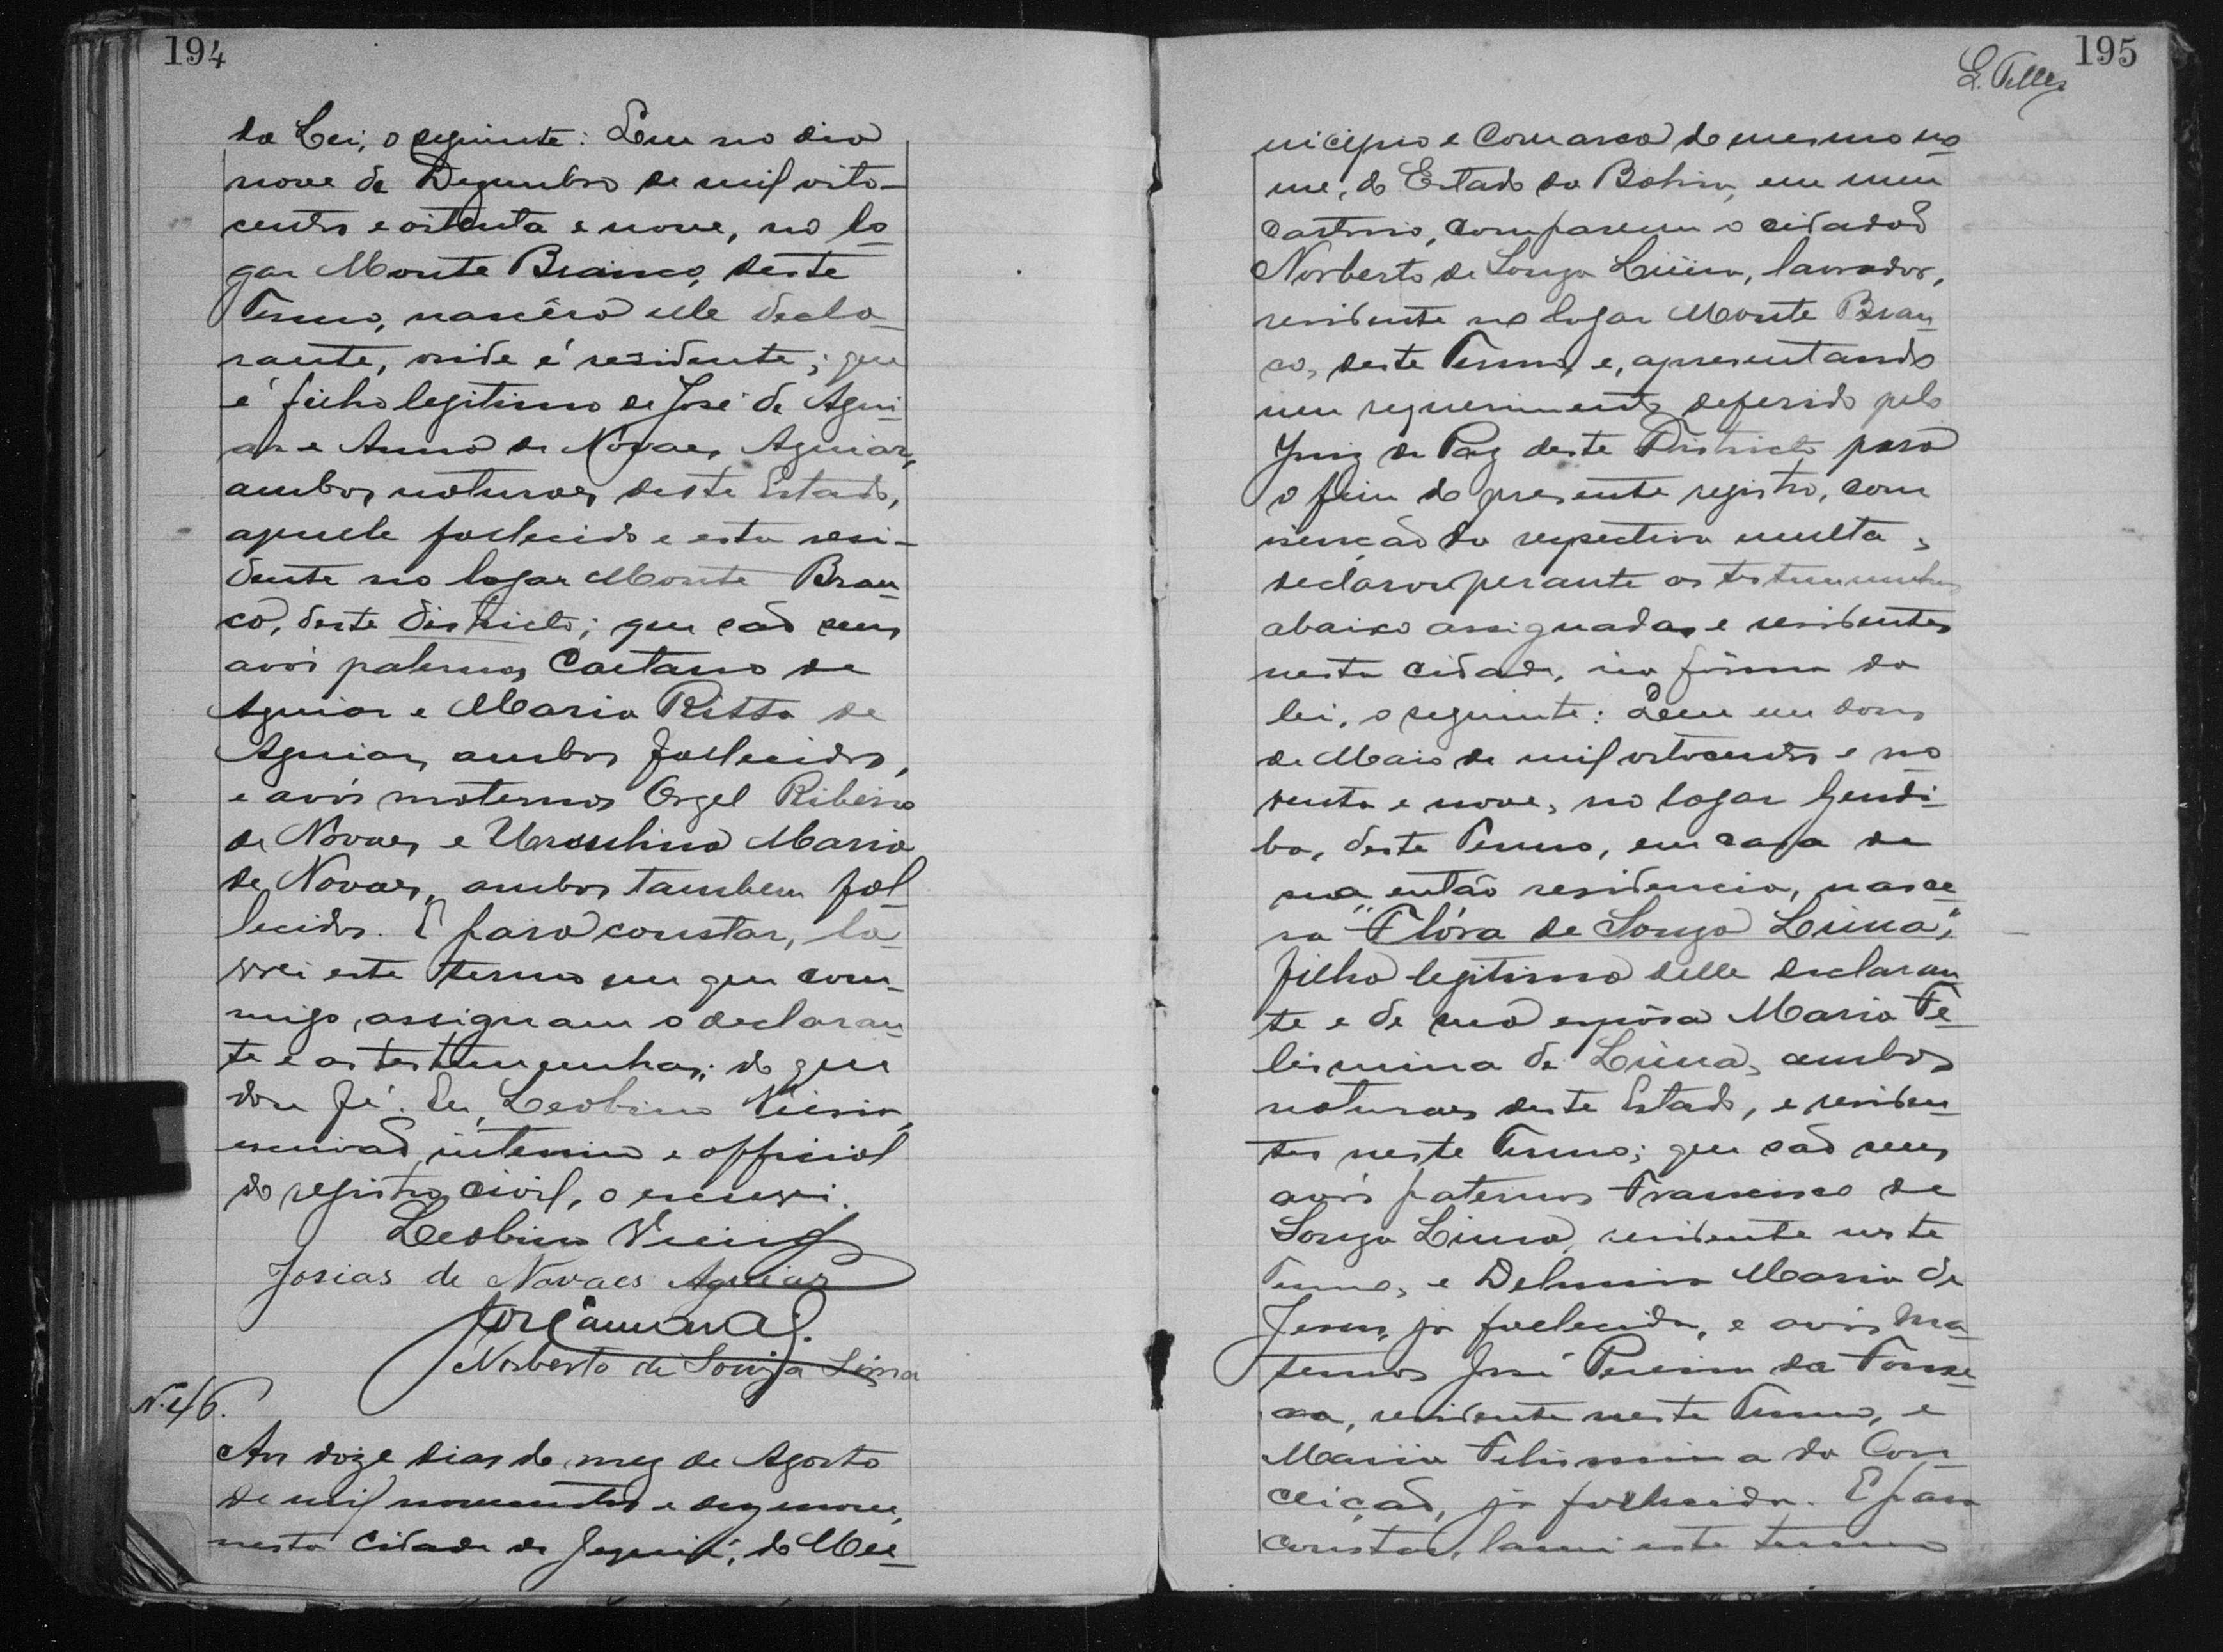 194
da Lei, o seguinte: Que no dia
nove de Dezembro de mil oito-
centos e oitenta e nove, no lo-
gar Monte Branco, deste
Termo, nascêra elle decla-
rante, onde é residente; que
é filho legitimo de José de Agui-
ar e Anna de Novaes Aguiar,
ambos naturaes deste Estado,
aquelle fallecido e esta resi-
dente no logar Monte Bran-
co, deste districto; que são seus
avós paternos Caetano de
Aguiar e Maria Ritta de
Aguiar, ambos fallecidos,
e avós maternos Orgel Ribeiro
de Novaes e Ursulina Maria
de Novaes, ambos tambem fal-
lecidos. E para constar, la-
vrei este termo em que com-
migo, assignam o declaran-
te e as testemunhas; do que
dou fé. Eu, Leobino
escrivão interino e official
do registro civil, o escrevi.
Leobino
Josias de Novaes Aguiar
Norberto de Souza Lima
N. 46.
Aos doze dias do mez de Agosto
de mil novecentos e dezenove,
nesta Cidade de Jequié, do Mu-
195
L. Telles
nicipio e Comarca do mesmo no-
me, do Estado da Bahia, em meu
Cartorio, compareceu o cidadão
Norberto de Souza Lima, lavrador,
residente no logar Monte Bran-
co, deste Termo, e, apresentando
um requerimento deferido pelo
Juiz de Paz deste Districto para
o fim do presente registro, com
isenção da respectiva multa,
declarou perante as testemunhas
abaixo assignadas e residentes
nesta cidade, na fórma da
lei, o seguinte: Que em dous
de Maio de mil oitocentos e no-
venta e nove, no logar Gendi-
ba, deste Termo, em casa de
sua então residencia, nasce-
ra "Flóra de Souza Lima",
filha legitima delle declaran-
te e de sua espôsa Maria Fe-
lismina de Lima, ambos
naturaes deste Estado, e residen-
tes neste Termo; que são seus
avós paternos Francisco de
Souza Lima, residente neste
Termo, e Delmira Maria de
Jesus, já fallecida, e avós ma-
ternos José Pereira da Fonse-
ca, residente neste Termo, e
Maria Felismina da Con-
ceição, já fallecida. E para
constar, lavrei este termo